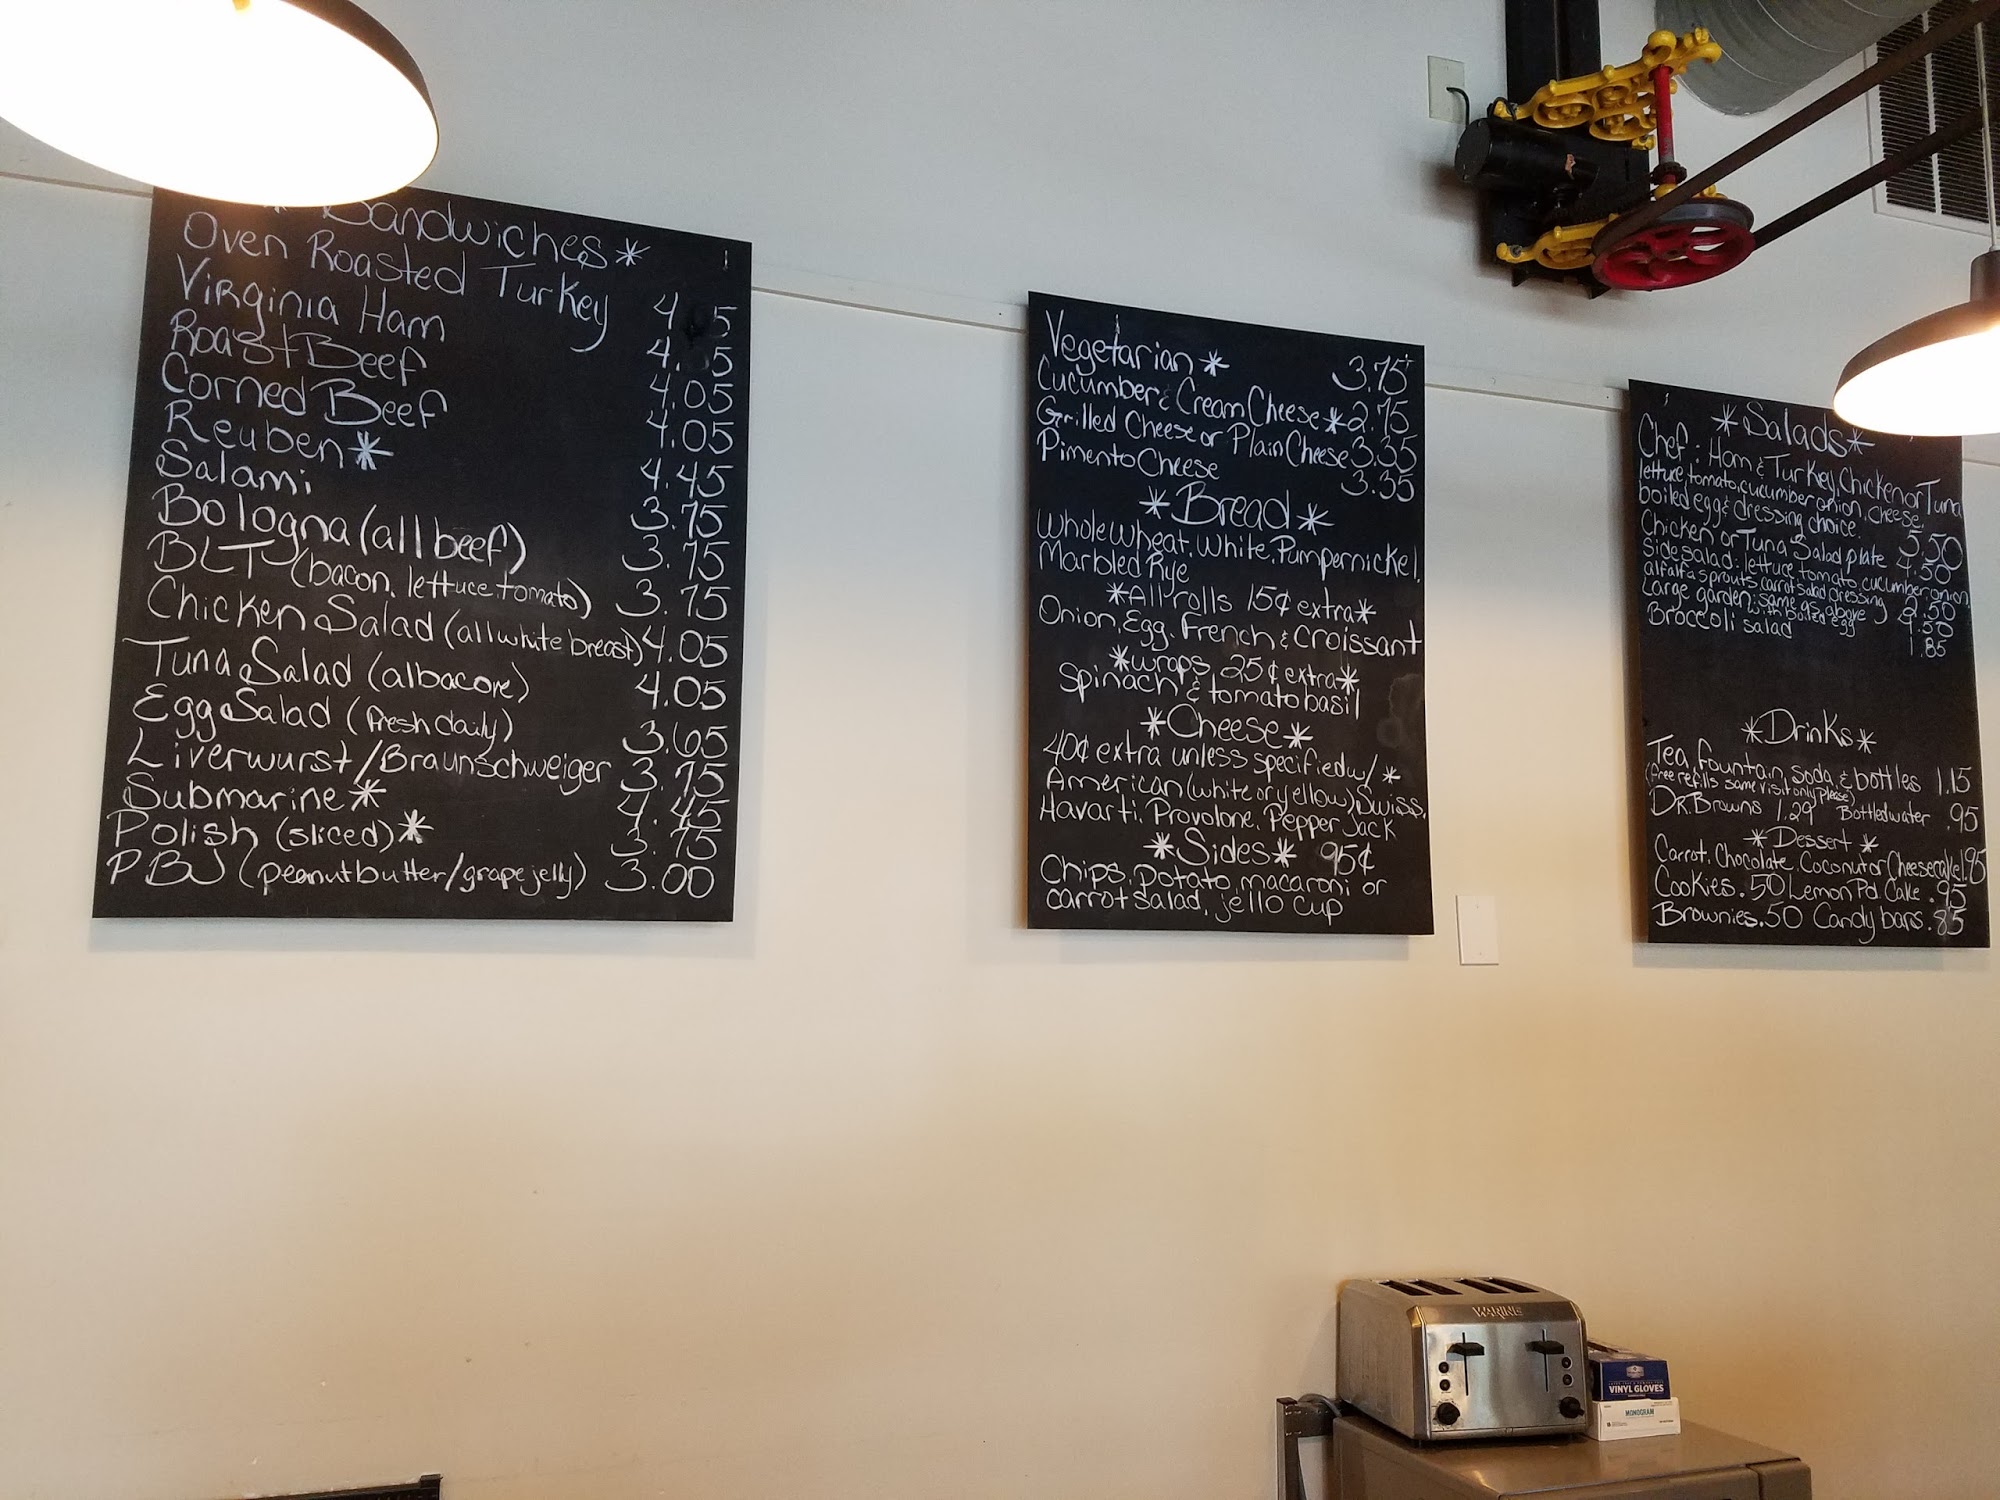 * Sandwiches *
Oven Roasted Turkey 4.05
Virginia Ham 4.05
Roast Beef 4.05
Corned Beef 4.05
Reuben * 4.45
Salami 3.75
Bologna (all beef) 3.75
BLT (bacon, lettuce, tomato) 3.75
Chicken Salad (all white breast) 4.05
Tuna Salad (albacore) 4.05
Egg Salad (fresh daily) 3.65
Liverwurst/Braunschweiger 3.75
Submarine * 4.45
Polish (sliced) * 3.75
PBJ (peanut butter/grape jelly) 3.00
Vegetarian * 3.75
Cucumber & Cream Cheese * 2.75
Grilled Cheese or Plain Cheese 3.35
Pimento Cheese 3.35
* Bread *
Whole Wheat, White, Pumpernickel,
Marbled Rye
* All rolls 15¢ extra *
Onion, Egg, French & Croissant
* wraps 25¢ extra *
Spinach & tomato basil
* Cheese *
40¢ extra unless specified w/ *
American (white or yellow), Swiss,
Havarti, Provolone, Pepper Jack
* Sides * 95¢
Chips, potato, macaroni or
carrot salad, jello cup
* Salads *
Chef: Ham & Turkey, Chicken or Tuna
lettuce, tomato, cucumber, onion, cheese,
boiled egg & dressing choice. 5.50
Chicken or Tuna Salad plate 4.50
Side salad: lettuce, tomato, cucumber, onion,
alfalfa sprouts, carrot salad, dressing 2.50
Large garden: same as above with boiled egg 4.50
Broccoli salad 1.85
* Drinks *
Tea, fountain, soda, & bottles 1.15
(free refills same visit only please)
Dr. Browns 1.29 Bottled water .95
* Dessert *
Carrot, Chocolate, Coconut or Cheesecake 1.95
Cookies .50 Lemon Pd Cake .95
Brownies .50 Candy bars .85
WARING
VINYL GLOVES
MONOGRAM